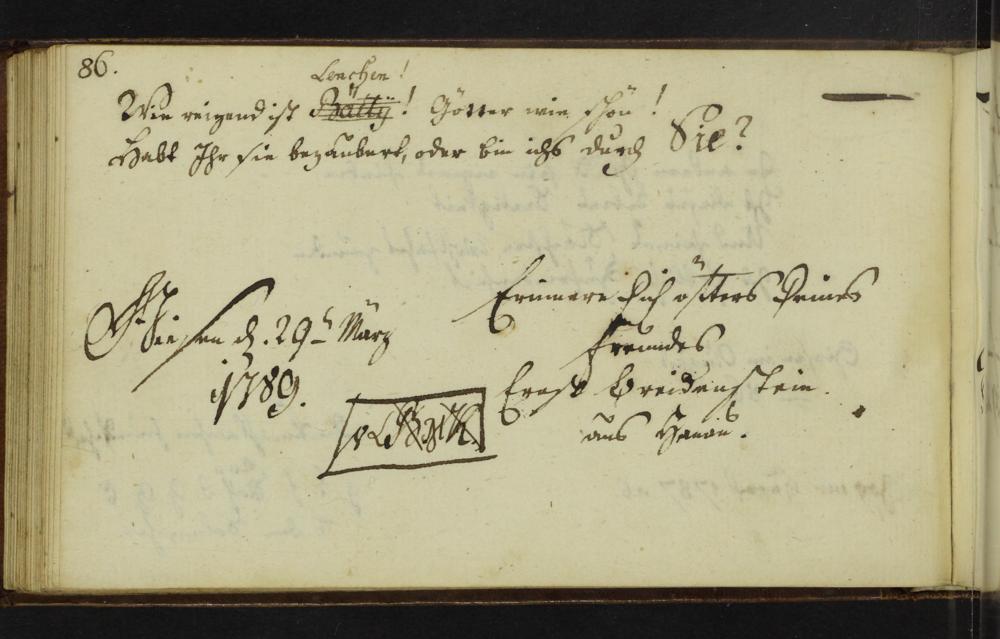 86.
Lenchen!
Wie reizend ist Bätty! Götter wie schön!
Habt Ihr sie bezaubert, oder bin ichs durch Sie?
Giesen d. 29t März
1789.
Erinnere dich öfters Deines
Freundes
Ernst Breidenstein.
aus Hanau.